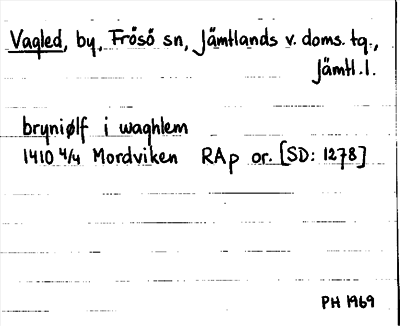 Vagled, by, Frösö sn, Jämtlands v. doms. tg.,
Jämtl. l.
bryniølf i waghlem
1410 4/4 Mordviken RAp or. [SD: 1278]
PH 1969